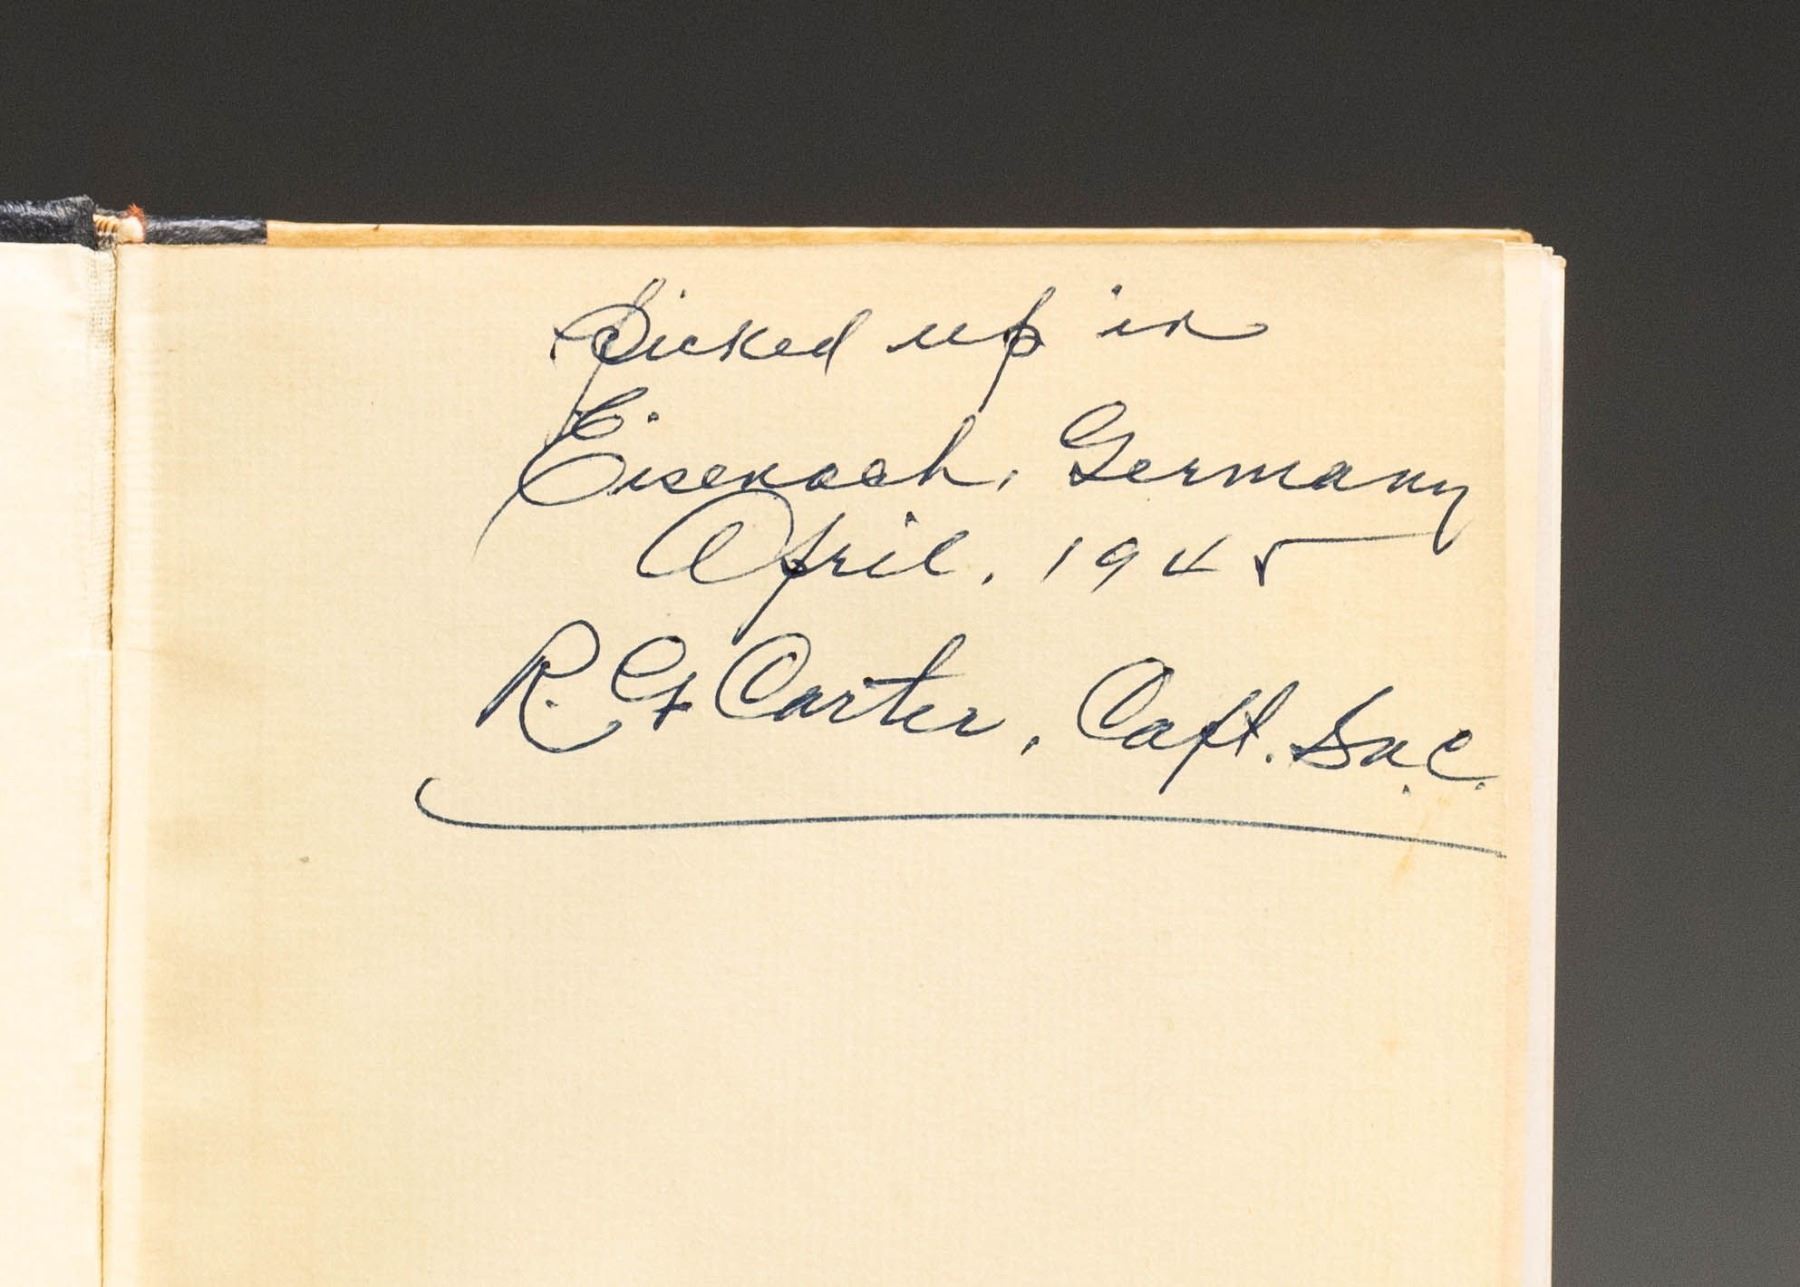 Picked up in
Eisenach, Germany
April, 1945
R. G. Carter, Capt. Sn.C.